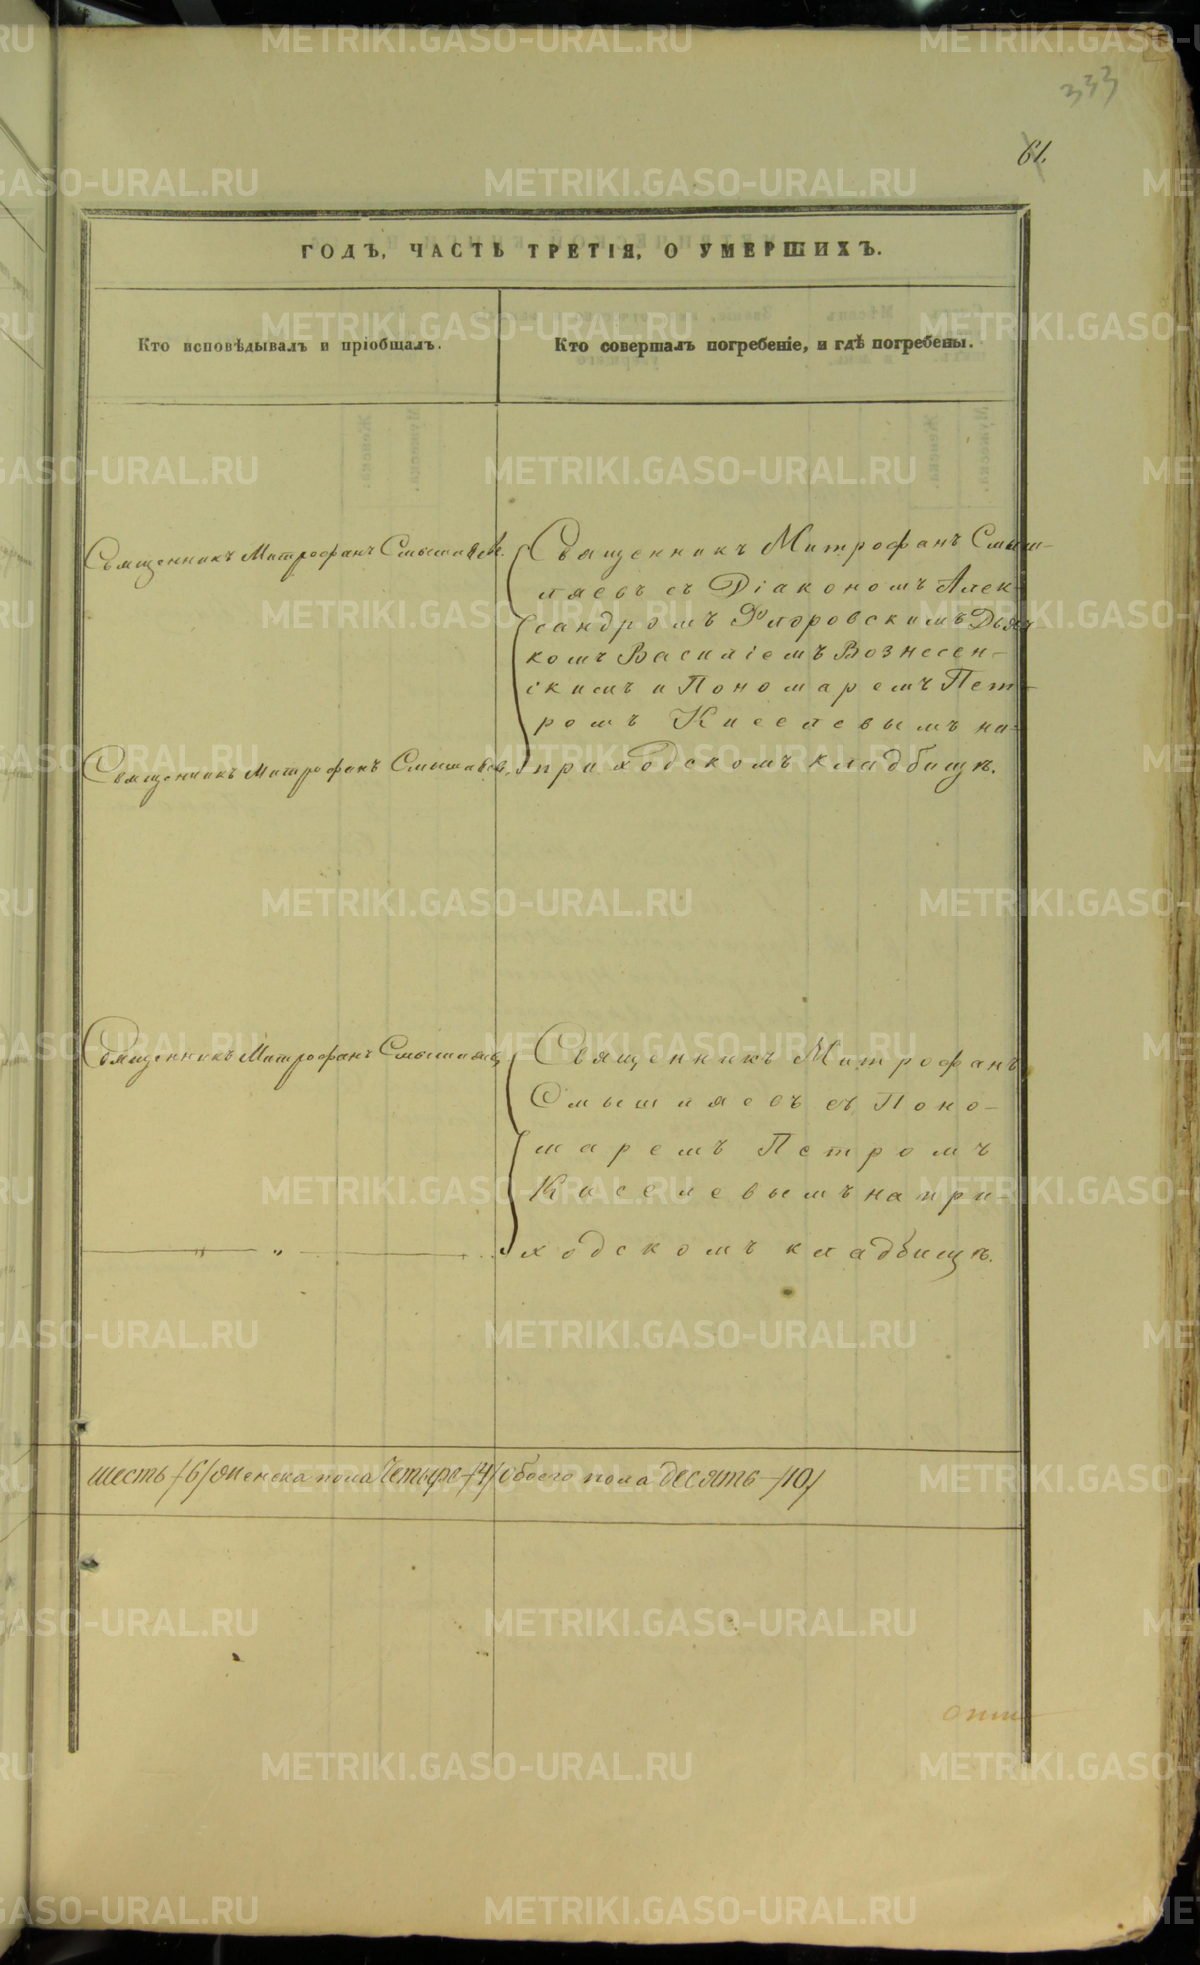 333
61.
ГОДЪ, ЧАСТЬ ТРЕТІЯ, О УМЕРШИХЪ.
Кто исповѣдывалъ и пріобщалъ.
Кто совершалъ погребеніе, и гдѣ погребены.
Священникъ Митрофанъ Смышляев.
Священникъ Митрофанъ Смыш-
ляевъ съ Діакономъ Алек-
сандромъ Флоровскимъ Дьяч
комъ Василіемъ Вознесен-
скимъ и Пономаремъ Пет-
ромъ Киселевымъ на-
Священникъ Митрофанъ Смышляев.
приходскомъ кладбищѣ.
Священникъ Митрофанъ Смышляев
Священникъ Митрофанъ
Смышляевъ съ Поно-
маремъ Петромъ
Киселевымъ на при-
ходскомъ кладбищѣ.
шесть /6/ женска пола четыре /4/ обоего пола десять /10/
METRIKI.GASO-URAL.RU